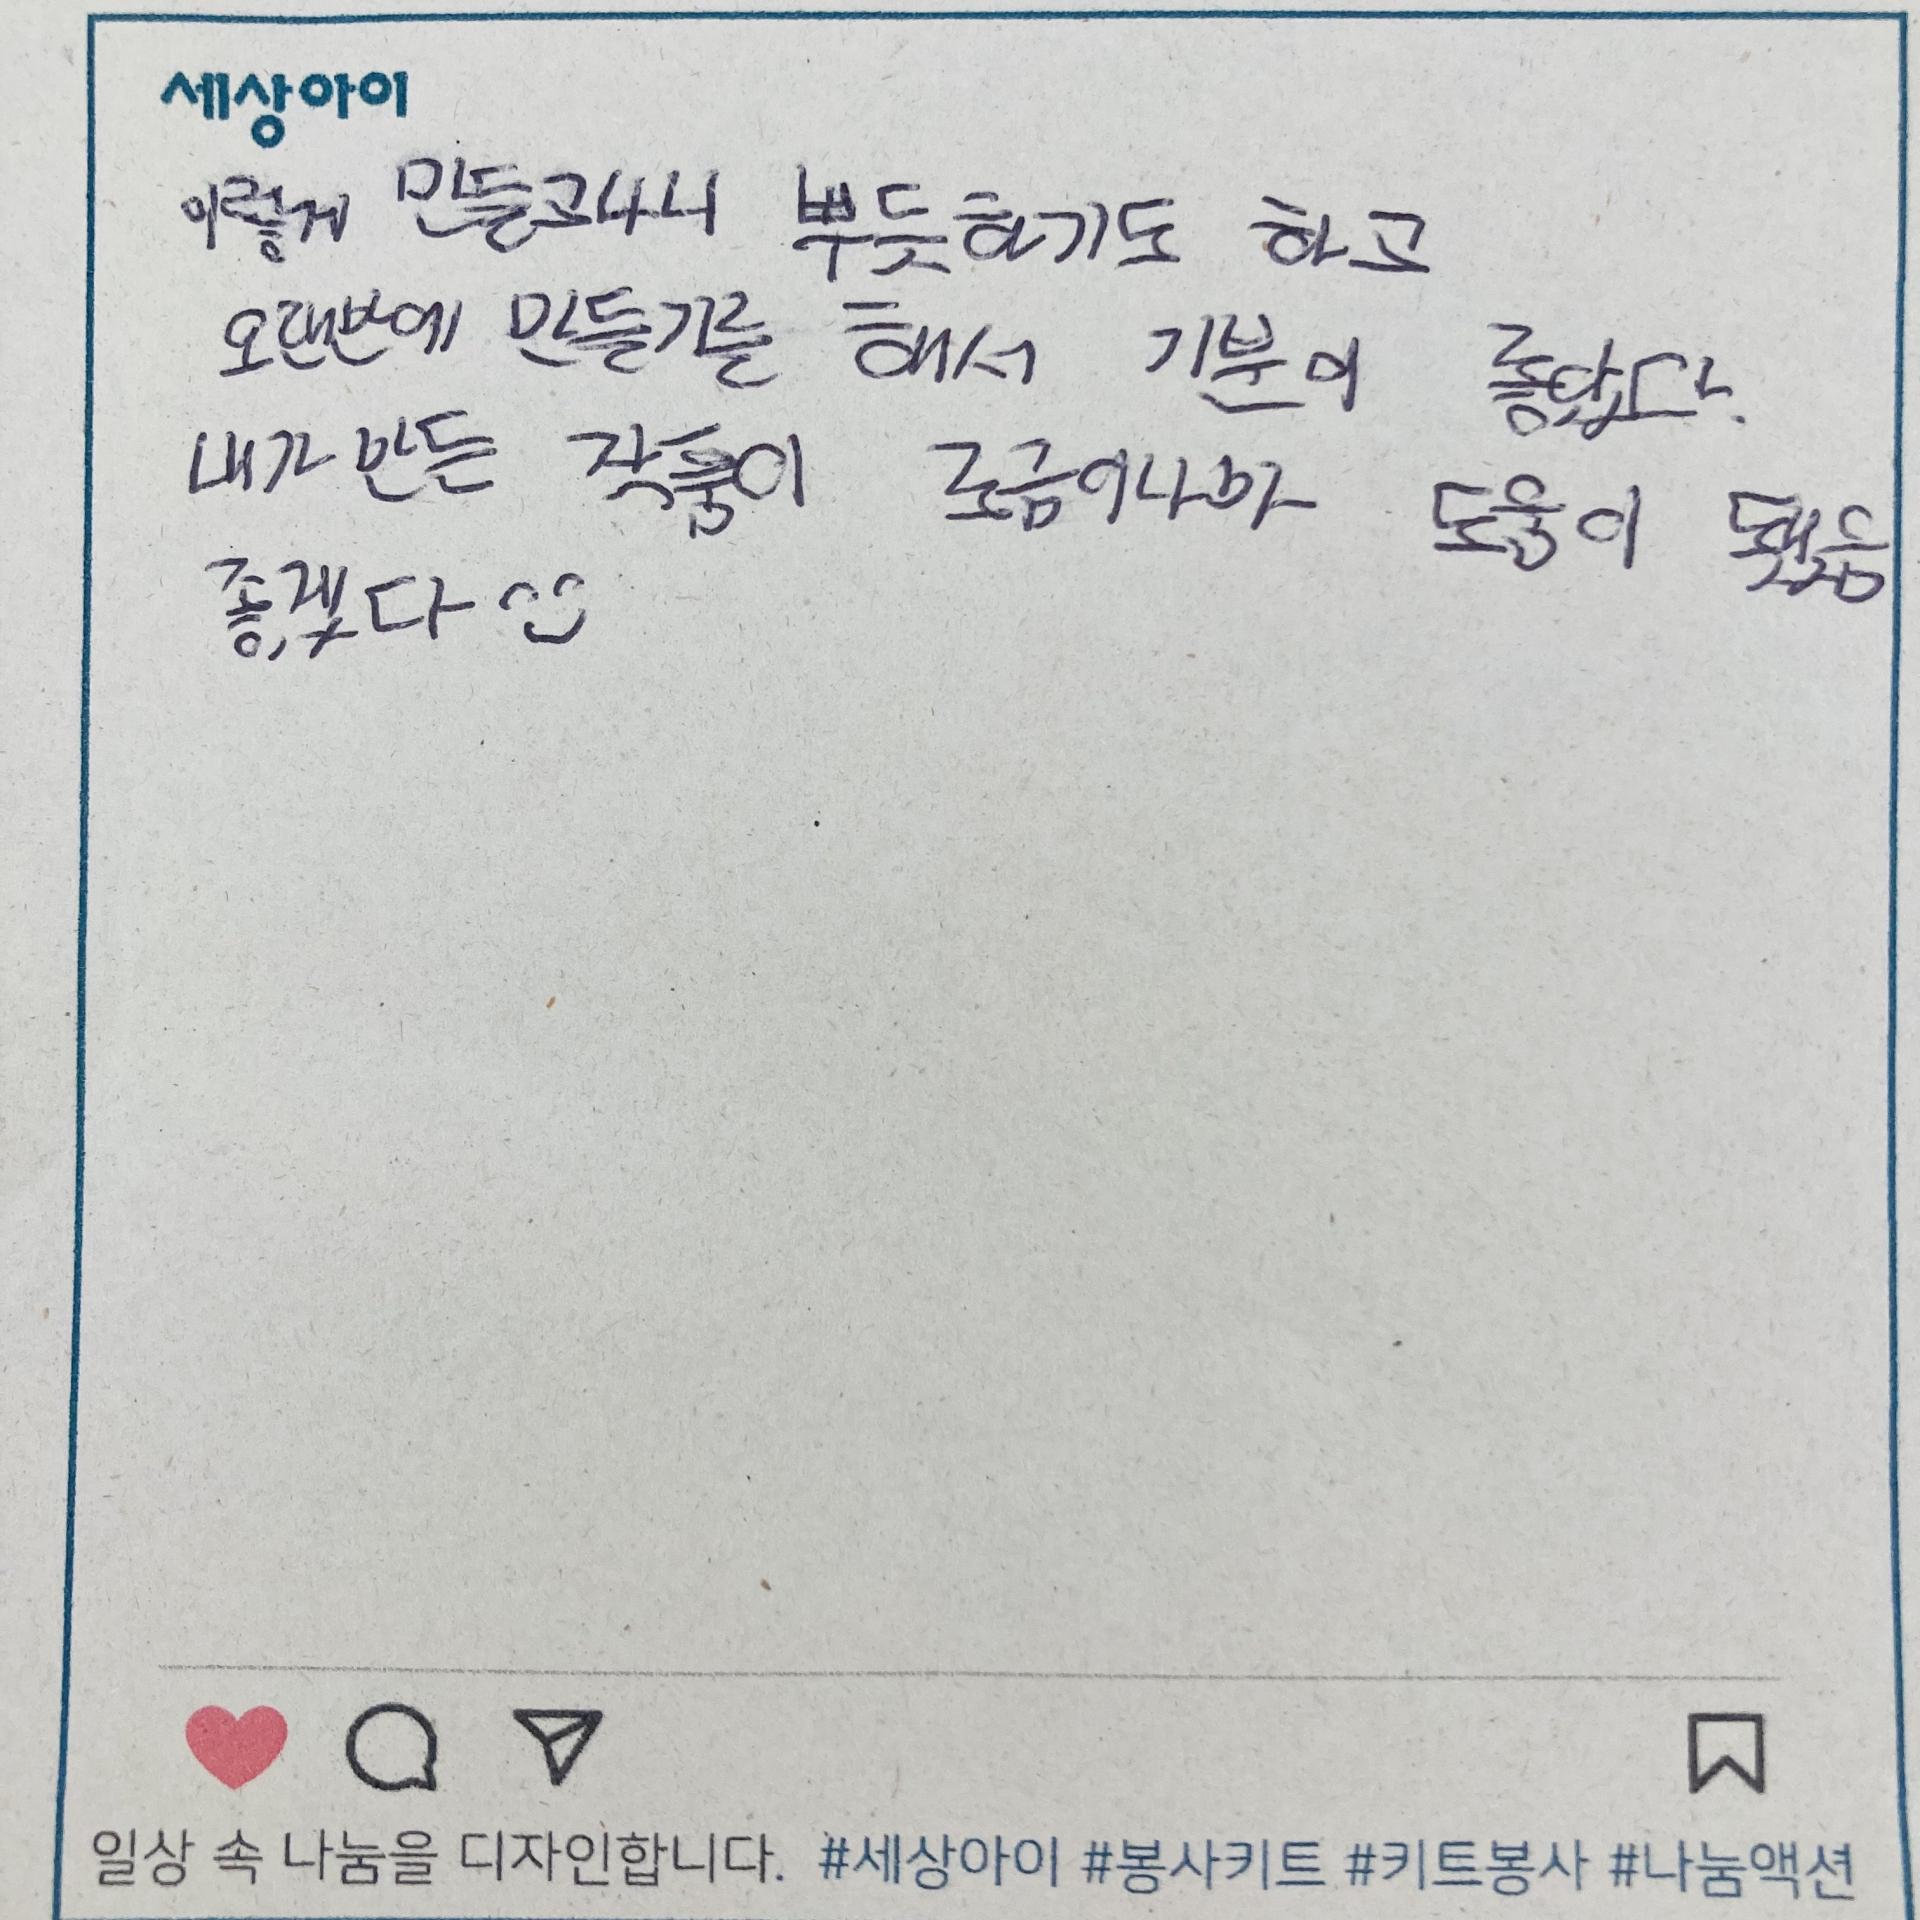 세상아이
이렇게 만들고나니 뿌듯하기도 하고
오랜만에 만들기를 해서 기분이 좋았다.
내가 만든 작품이 조금이나마 도움이 됐음
좋겠다
일상 속 나눔을 디자인합니다. #세상아이 #봉사키트 #키트봉사 #나눔액션